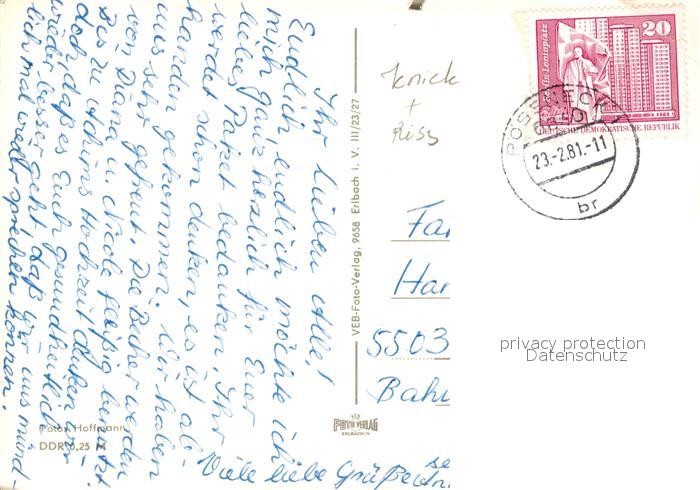 Ihr Lieben Alle!
Endlich, endlich möchte ich
mich ganz herzlich für Euer
liebes Paket bedanken. Ihr
werdet schon denken, es ist ab-
handen gekommen. Wir haben
uns sehr gefreut. Die Becher werden
von Diana u. Nicole fleißig benutzt.
Bis zu Achims Hochzeit denken wir
doch, daß es Euch gesundheitlich
wieder besser geht, daß wir uns münd-
lich mal wieder sprechen können.
Viele liebe Grüße
Foto: Hoffmann
DDR 0,25 M
VEB-Foto-Verlag, 9658 Erlbach i. V. III/23/27
FOTO VERLAG
ERLBACH/V.
Knick
+
Riss
20
Leninplatz
DEUTSCHE DEMOKRATISCHE REPUBLIK
POSSNECK 1
23.-2.81.-11
br
Fa
Ha
5503
Bah
privacy protection
Datenschutz